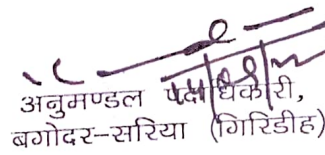 अनुमण्डल पदाधिकारी,
बगोदर-सरिया (गिरिडीह)